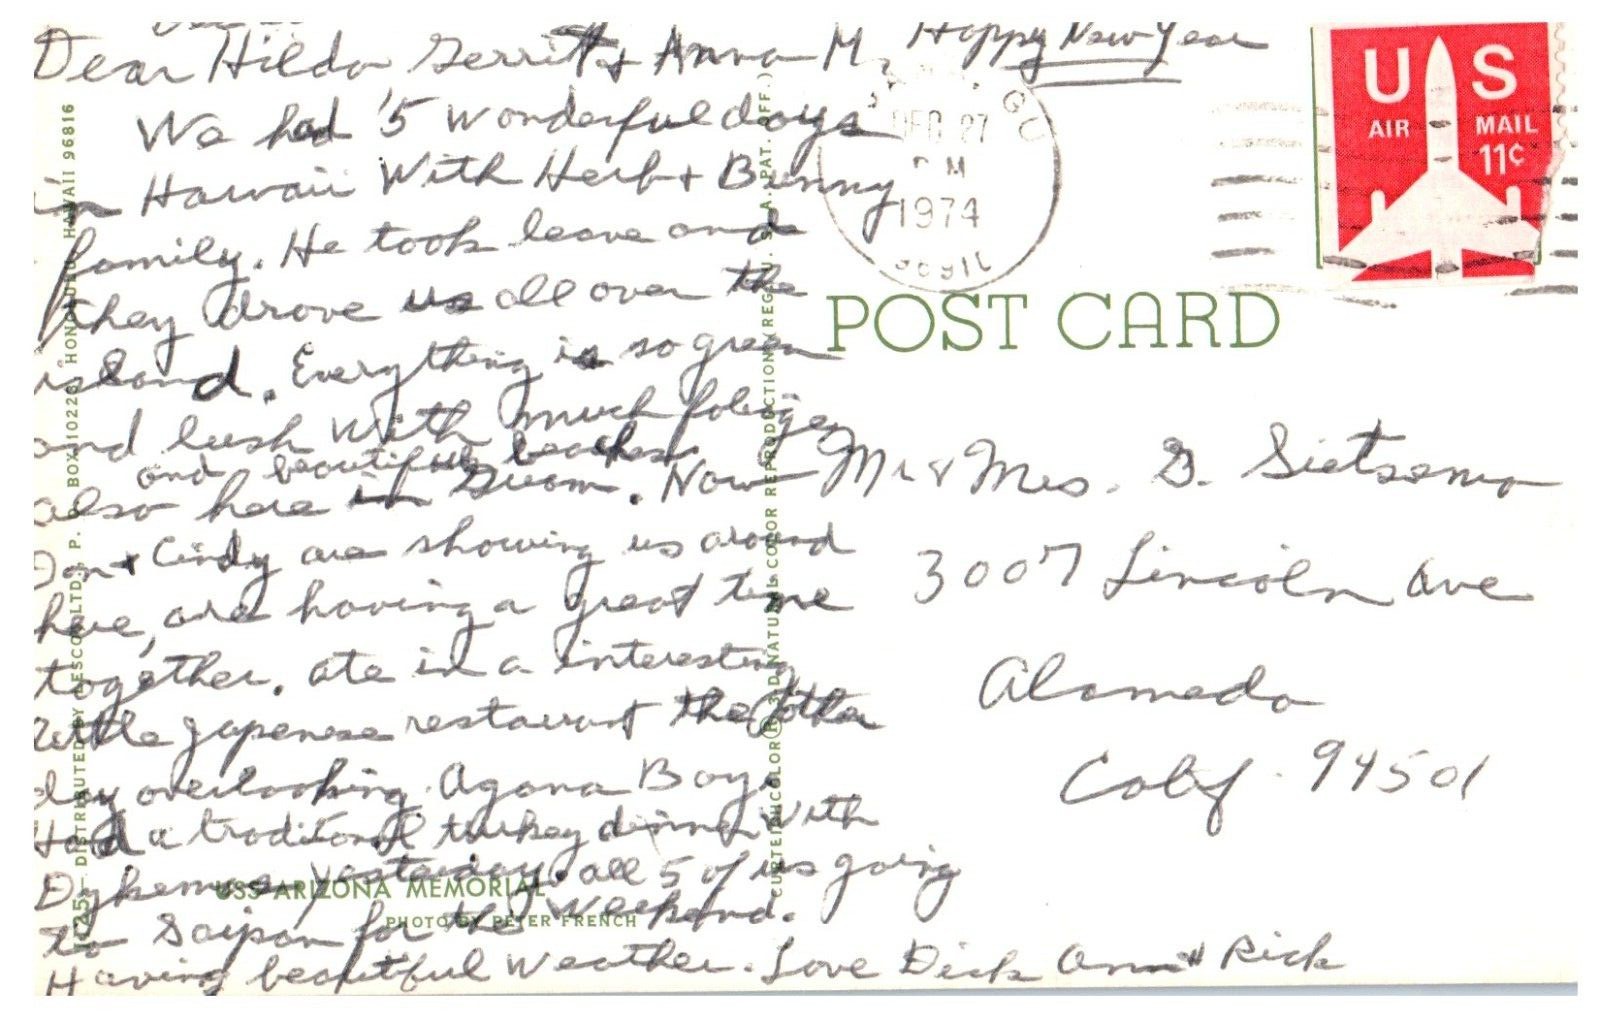 Dear Hilda Gerritt & Anna M. Happy New Year
We had 5 wonderful days
in Hawaii With Herb & Bunny
family. He took leave and
they drove us all over the
island. Everything is so green
and lush with much foliage,
and beautiful beaches
also here in Guam. Now
Don & Cindy are showing us around
here, are having a great time
together. ate in a interesting
little Japenese restaurant the other
day overlooking Agana Bay.
Had a traditional turkey dinner With
Dykemas yesterday. all 5 of us going
to Saipan for the Weekend.
Having beautiful Weather. Love Dick Ann & Rick
DEC 27
PM
1974
US
AIR MAIL
11¢
POST CARD
Mr & Mrs. G. Sietsema
3007 Lincoln Ave
Alameda
Calif. 94501
USS ARIZONA MEMORIAL
PHOTO BY PETER FRENCH
DISTRIBUTED BY MESCO LTD. P. O. BOX 10226 HONOLULU, HAWAII 96816
CURTEICHCOLOR® 3-D NATURAL COLOR REPRODUCTION (REG. U. S. A. PAT. OFF.)